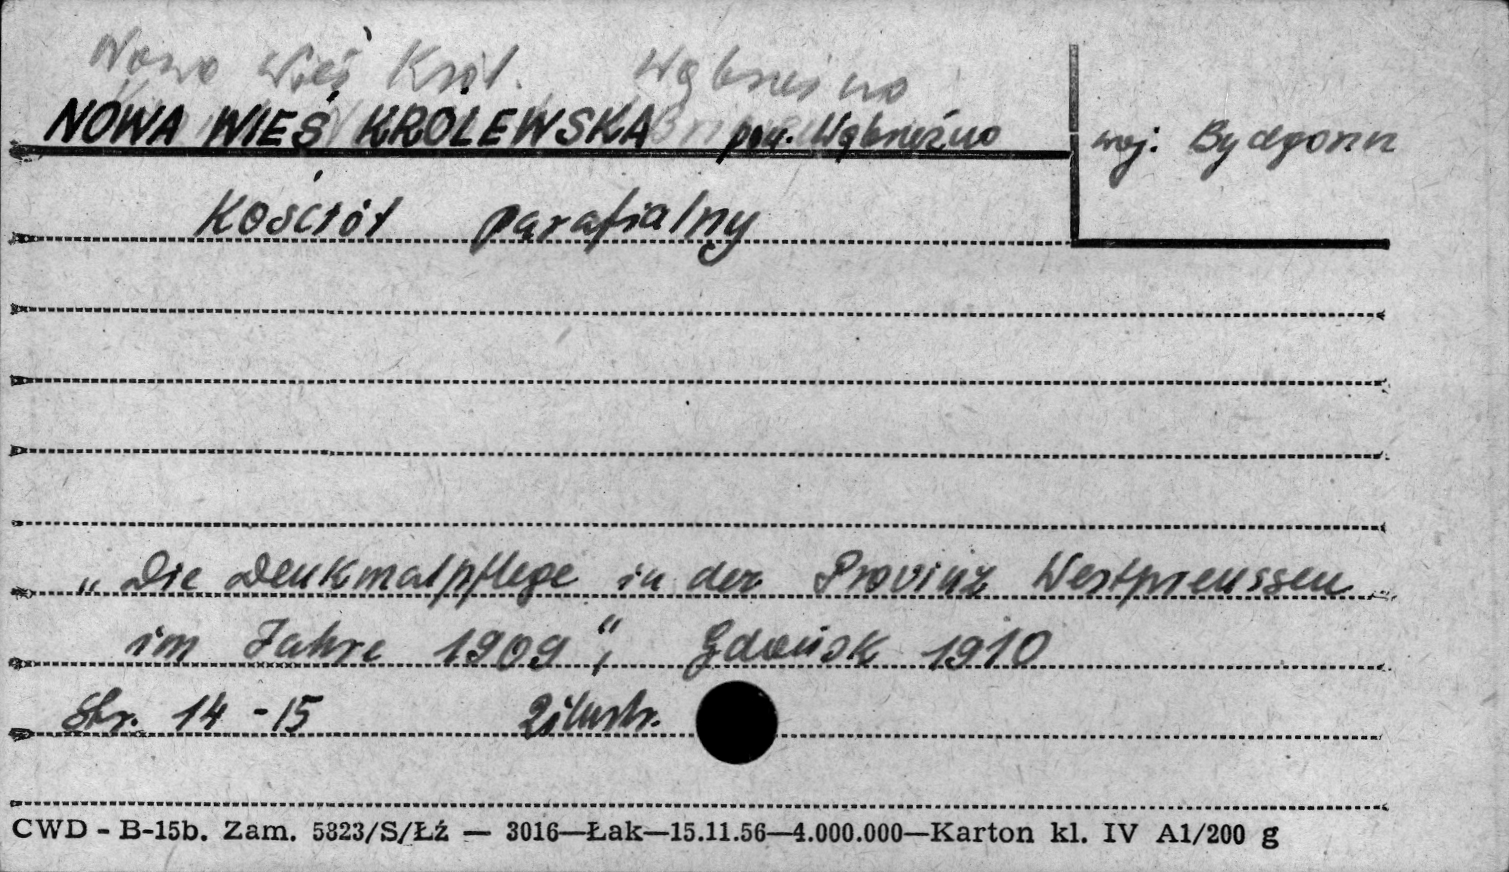 Nowa Wieś Król. Wąbrzeźno
NOWA WIEŚ KRÓLEWSKA pow. Wąbrzeźno
woj. Bydgoszcz
Kościół parafialny
„Die Denkmalpflege in der Provinz Westpreussen
im Jahre 1909", Gdańsk 1910
Str. 14-15 2 ilustr.
CWD - B-15b. Zam. 5323/S/Łź — 3016—Łak—15.11.56—4.000.000—Karton kl. IV A1/200 g